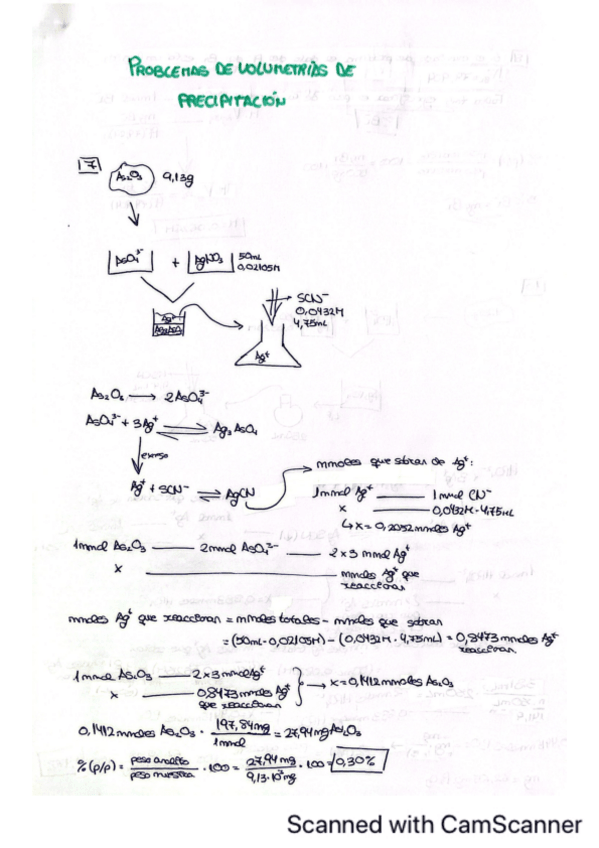 PROBLEMAS DE VOLUMETRÍAS DE
PRECIPITACIÓN
17
As₂O₃ 9,13g
AsO₄³⁻ + AgNO₃ 50mL
0,02105M
SCN⁻
0,0432M
4,75mL
Ag⁺
Ag₃AsO₄
Ag⁺
As₂O₃ → 2AsO₄³⁻
AsO₄³⁻ + 3Ag⁺ ⇌ Ag₃AsO₄
exceso
Ag⁺ + SCN⁻ ⇌ AgCN
mmoles que sobran de Ag⁺:
1mmol Ag⁺ — 1mmol CN⁻
x — 0,0432M · 4,75mL
↳ x = 0,2052 mmoles Ag⁺
1mmol As₂O₃ — 2mmol AsO₄³⁻ — 2 x 3 mmol Ag⁺
x — mmoles Ag⁺ que
reaccionan
mmoles Ag⁺ que reaccionan = mmoles totales - mmoles que sobran
= (50mL · 0,02105M) - (0,0432M · 4,75mL) = 0,8473 mmoles Ag⁺
reaccionan
1mmol As₂O₃ — 2x3 mmol Ag⁺
x — 0,8473 mmoles Ag⁺
que reaccionan
→ x = 0,1412 mmoles As₂O₃
0,1412 mmoles As₂O₃ · 197,84mg / 1mmol = 27,94 mg As₂O₃
% (p/p) = peso analito / peso muestra · 100 = 27,94 mg / 9,13·10³mg · 100 = 0,30%
Scanned with CamScanner